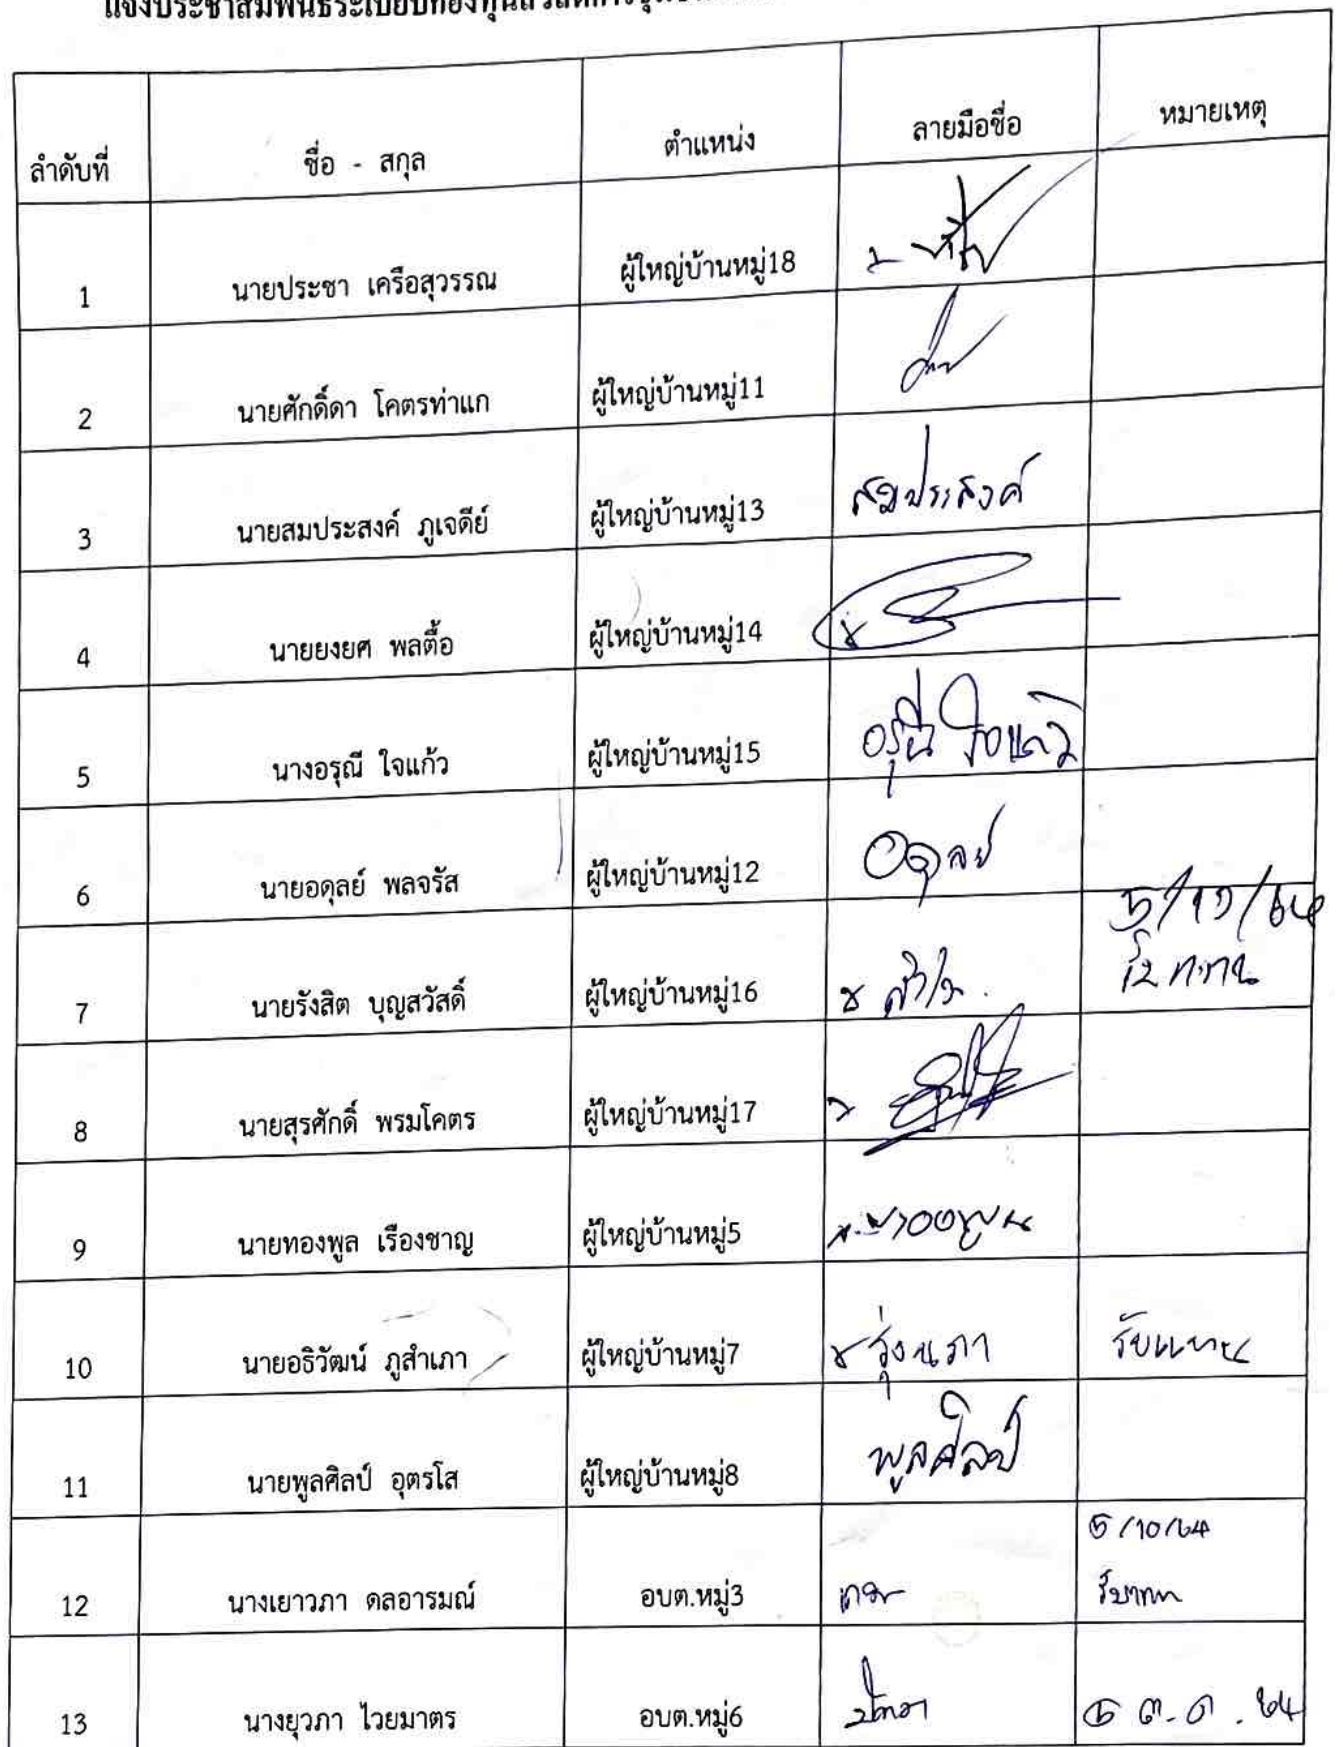 แจ้งประชาสัมพันธ์ระเบียบกองทุนสวัสดิการชุมชน
ลำดับที่ ชื่อ - สกุล ตำแหน่ง ลายมือชื่อ หมายเหตุ
1 นายประชา เครือสุวรรณ ผู้ใหญ่บ้านหมู่18
2 นายศักดิ์ดา โคตรท่าแก ผู้ใหญ่บ้านหมู่11
3 นายสมประสงค์ ภูเจดีย์ ผู้ใหญ่บ้านหมู่13 สมประสงค์
4 นายยงยศ พลตื้อ ผู้ใหญ่บ้านหมู่14
5 นางอรุณี ใจแก้ว ผู้ใหญ่บ้านหมู่15 อรุณี ใจแก้ว
6 นายอดุลย์ พลจรัส ผู้ใหญ่บ้านหมู่12 อดุลย์
5/10/64
7 นายรังสิต บุญสวัสดิ์ ผู้ใหญ่บ้านหมู่16
8 นายสุรศักดิ์ พรมโคตร ผู้ใหญ่บ้านหมู่17
9 นายทองพูล เรืองชาญ ผู้ใหญ่บ้านหมู่5 ทองพูน
10 นายอธิวัฒน์ ภูสำเภา ผู้ใหญ่บ้านหมู่7 รุ่งนภา รับแทน
11 นายพูลศิลป์ อุตรโส ผู้ใหญ่บ้านหมู่8 พูลศิลป์
5/10/64
12 นางเยาวภา ดลอารมณ์ อบต.หมู่3
13 นางยุวภา ไวยมาตร อบต.หมู่6 5 ต.ค. 64